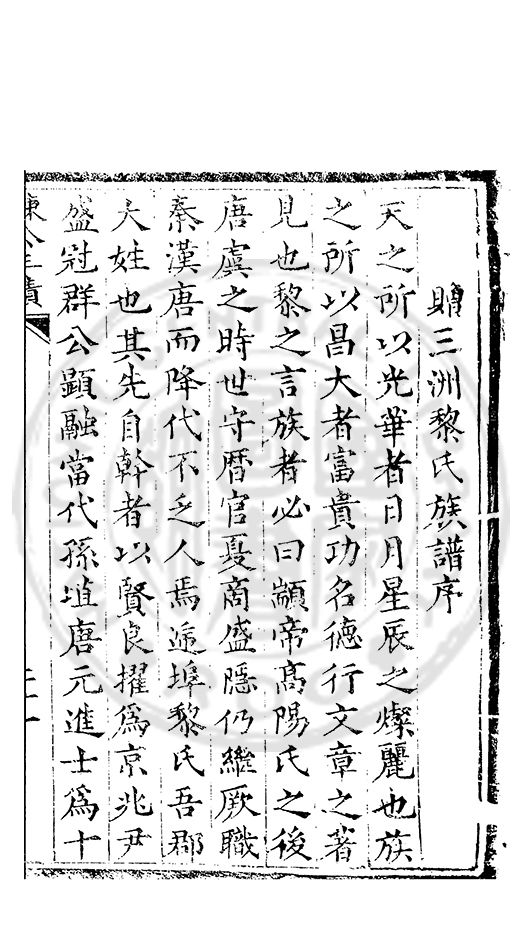 贈三洲黎氏族譜序
天之所以光華者日月星辰之燦麗也族
之所以昌大者富貴功名德行文章之著
見也黎之言族者必曰顓帝高陽氏之後
唐虞之時世守曆官夏商盛隱仍繼厥職
秦漢唐而降代不乏人焉逕埠黎氏吾郡
大姓也其先自幹者以賢良擢爲京兆尹
盛冠群公顯融當代孫埴唐元進士爲十